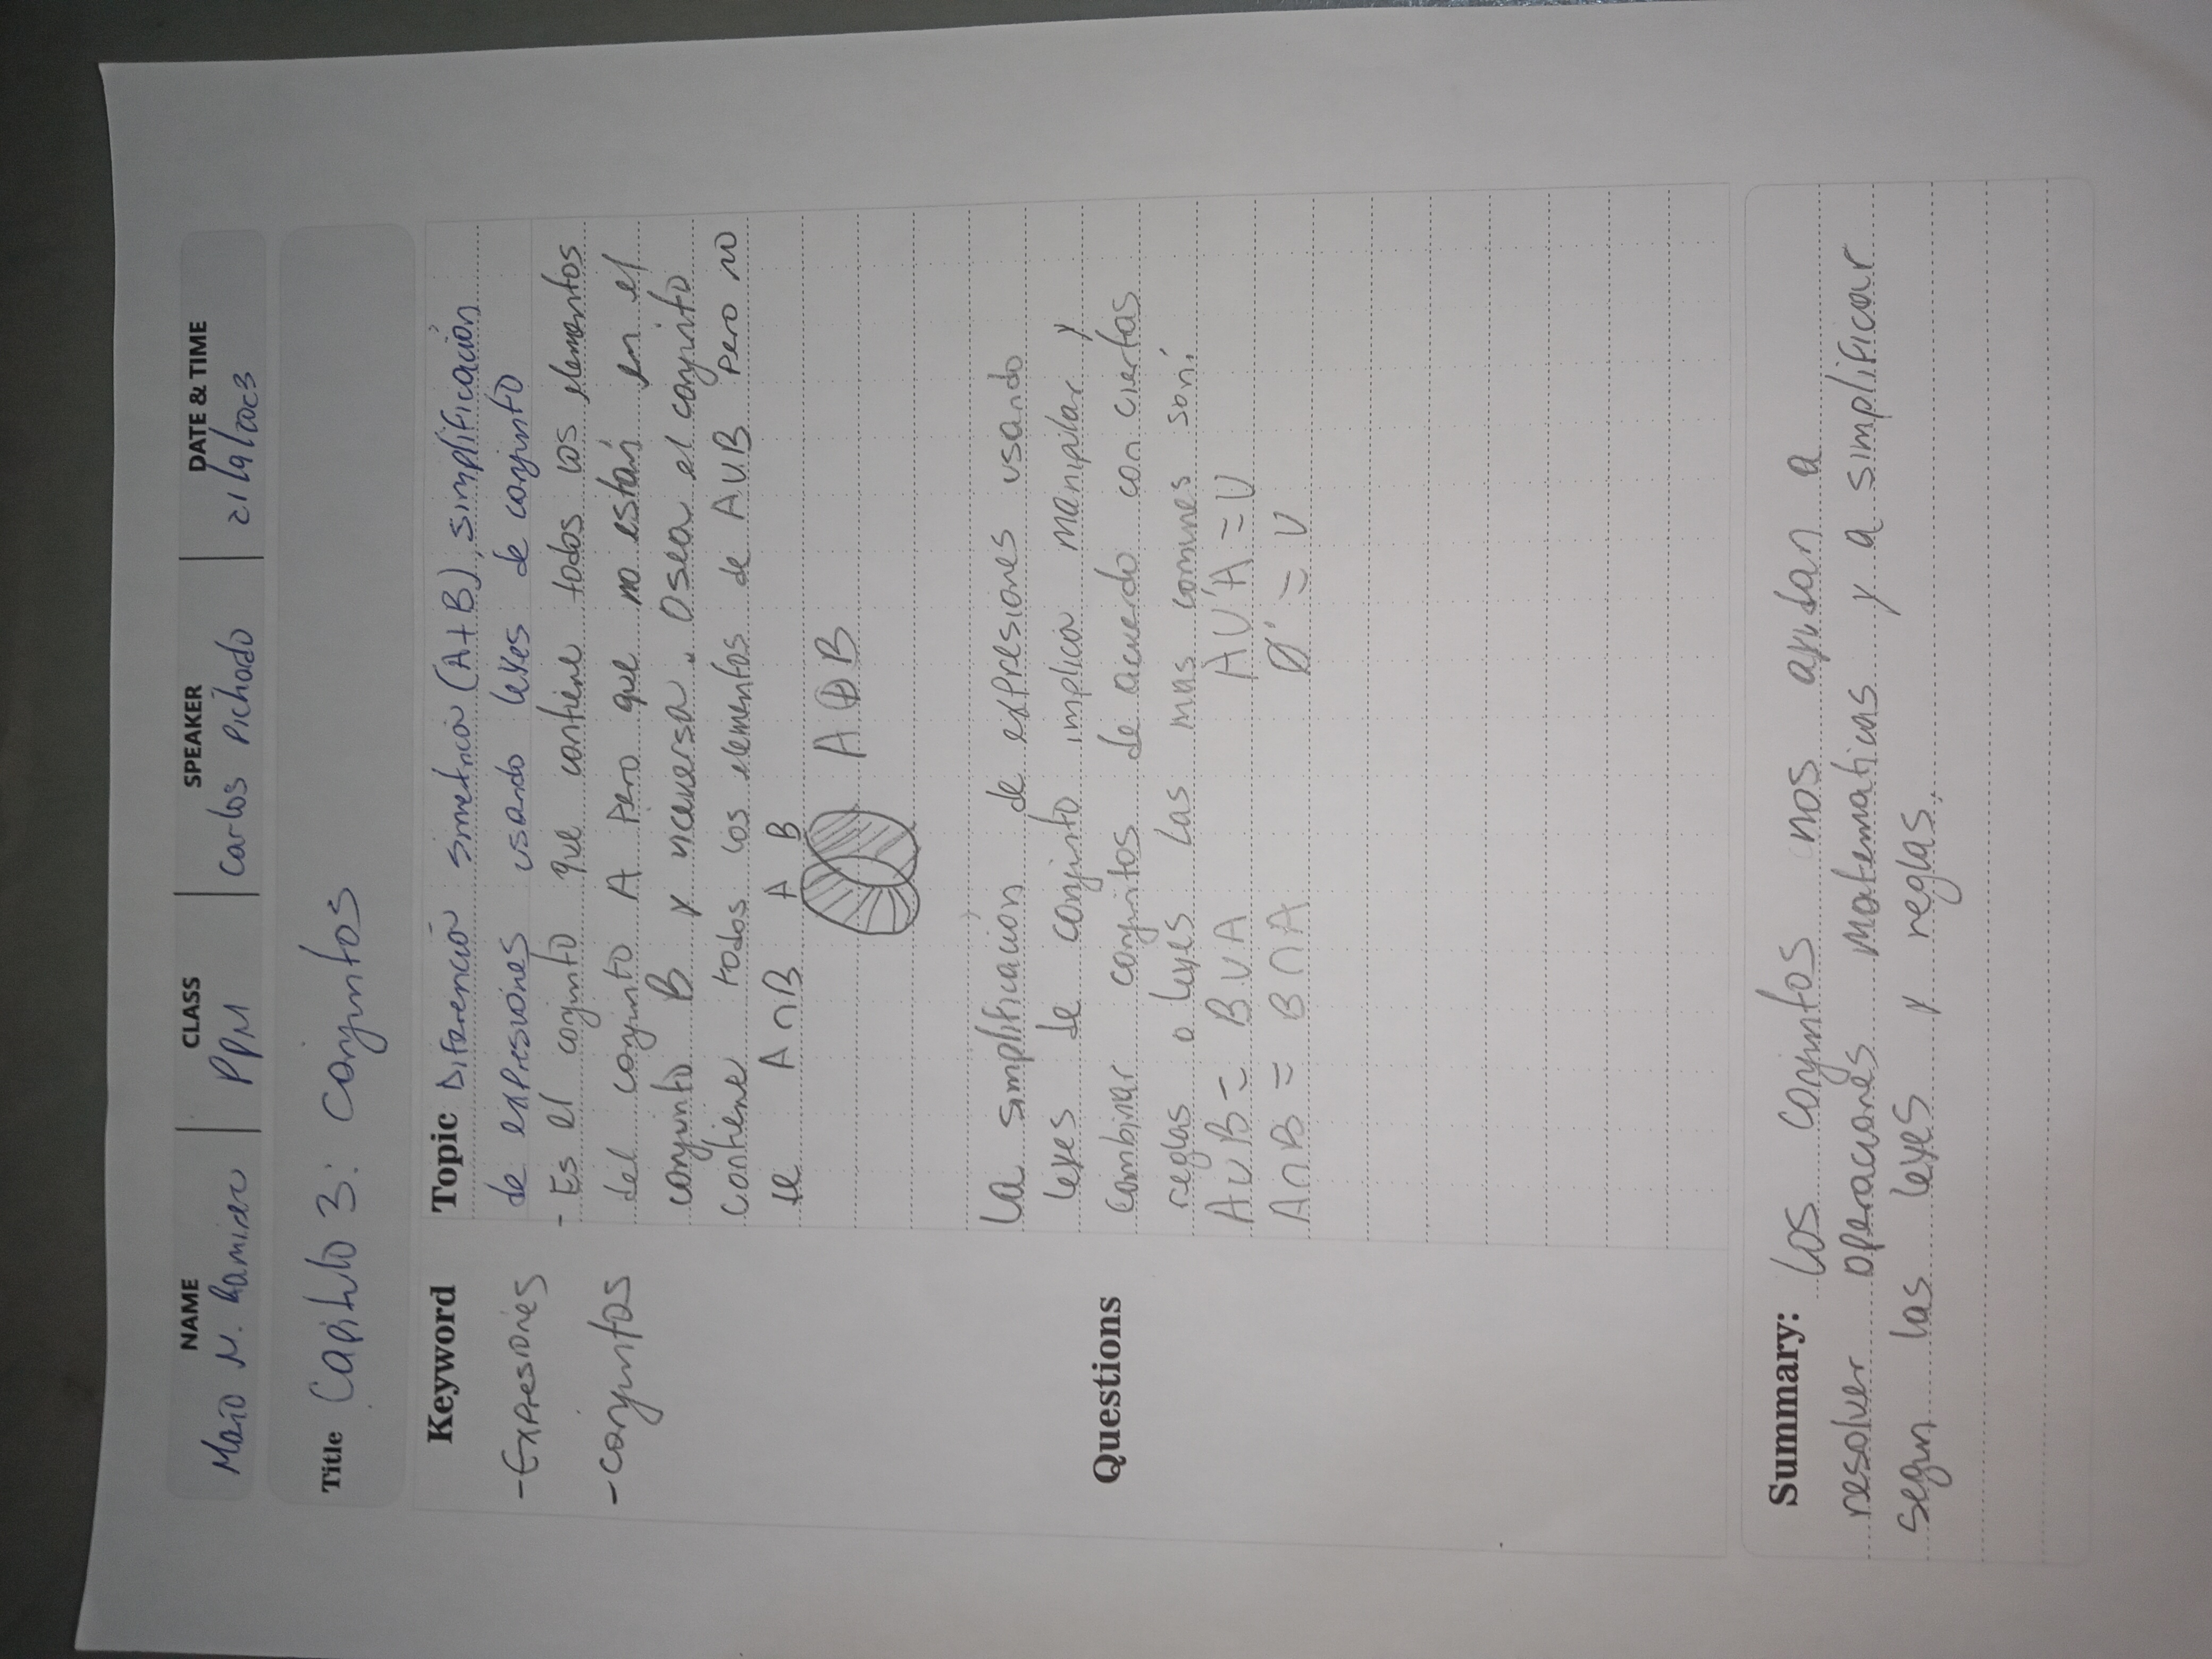 NAME CLASS SPEAKER DATE & TIME
Mario N. Ramirez PPM Carlos Pichardo 21/9/2023
Title Capitulo 3: Conjuntos
Keyword
- Expresiones
- conjuntos
Topic Diferencia simetrica (A+B), simplificación
de expresiones usando leyes de conjunto
- Es el conjunto que contiene todos los elementos
del conjunto A pero que no están en el
conjunto B y viceversa. Osea el conjunto
contiene todos los elementos de A∪B pero no
de A∩B A B
A⊕B
La simplificación de expresiones usando
leyes de conjunto implica manipular y
Questions
combinar conjuntos de acuerdo con ciertas
reglas o leyes Las mas comunes son:
A∪B = B∪A A∪'A = U
A∩B = B∩A Ø' = U
Summary: Los conjuntos nos ayudan a
resolver operaciones matematicas y a simplificar
segun las leyes y reglas.